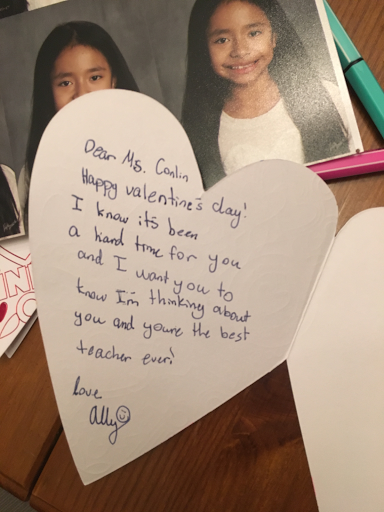 Dear Ms. Conlin
Happy valentine's day!
I know it's been
a hard time for you
and I want you to
know I'm thinking about
you and youre the best
teacher ever!
Love
Ally